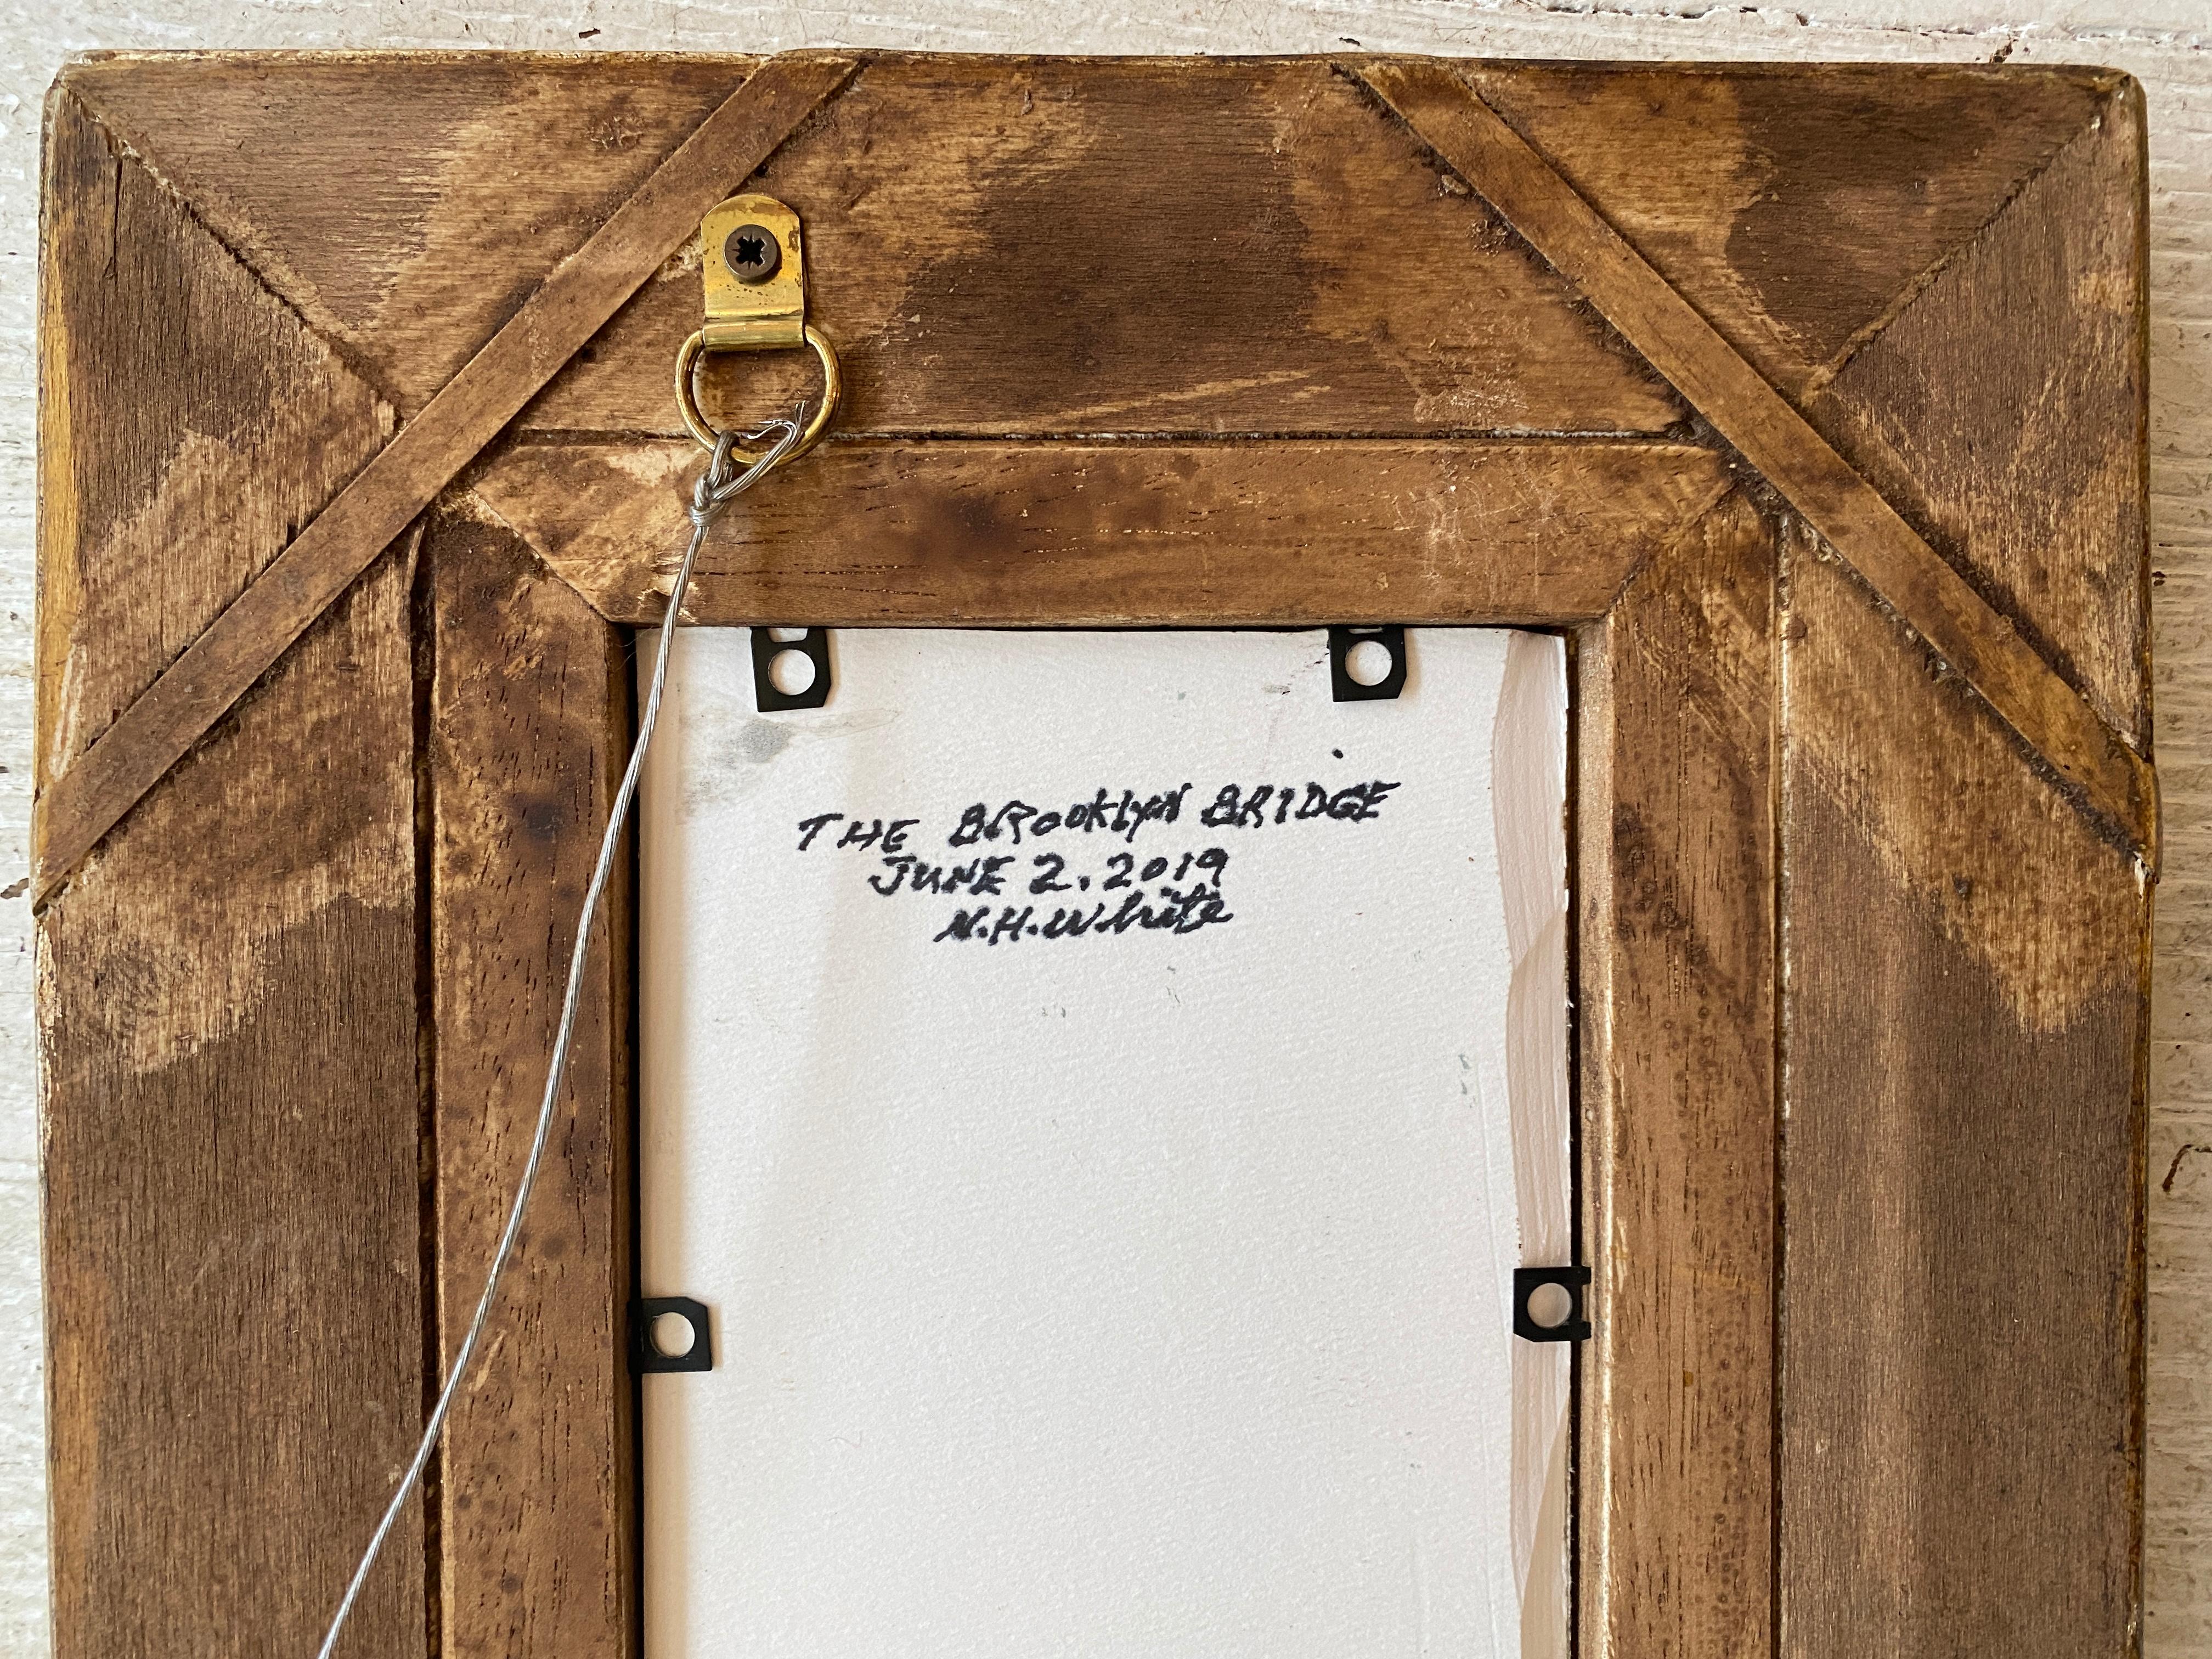 THE BROOKLYN BRIDGE
JUNE 2. 2019
N.H. White